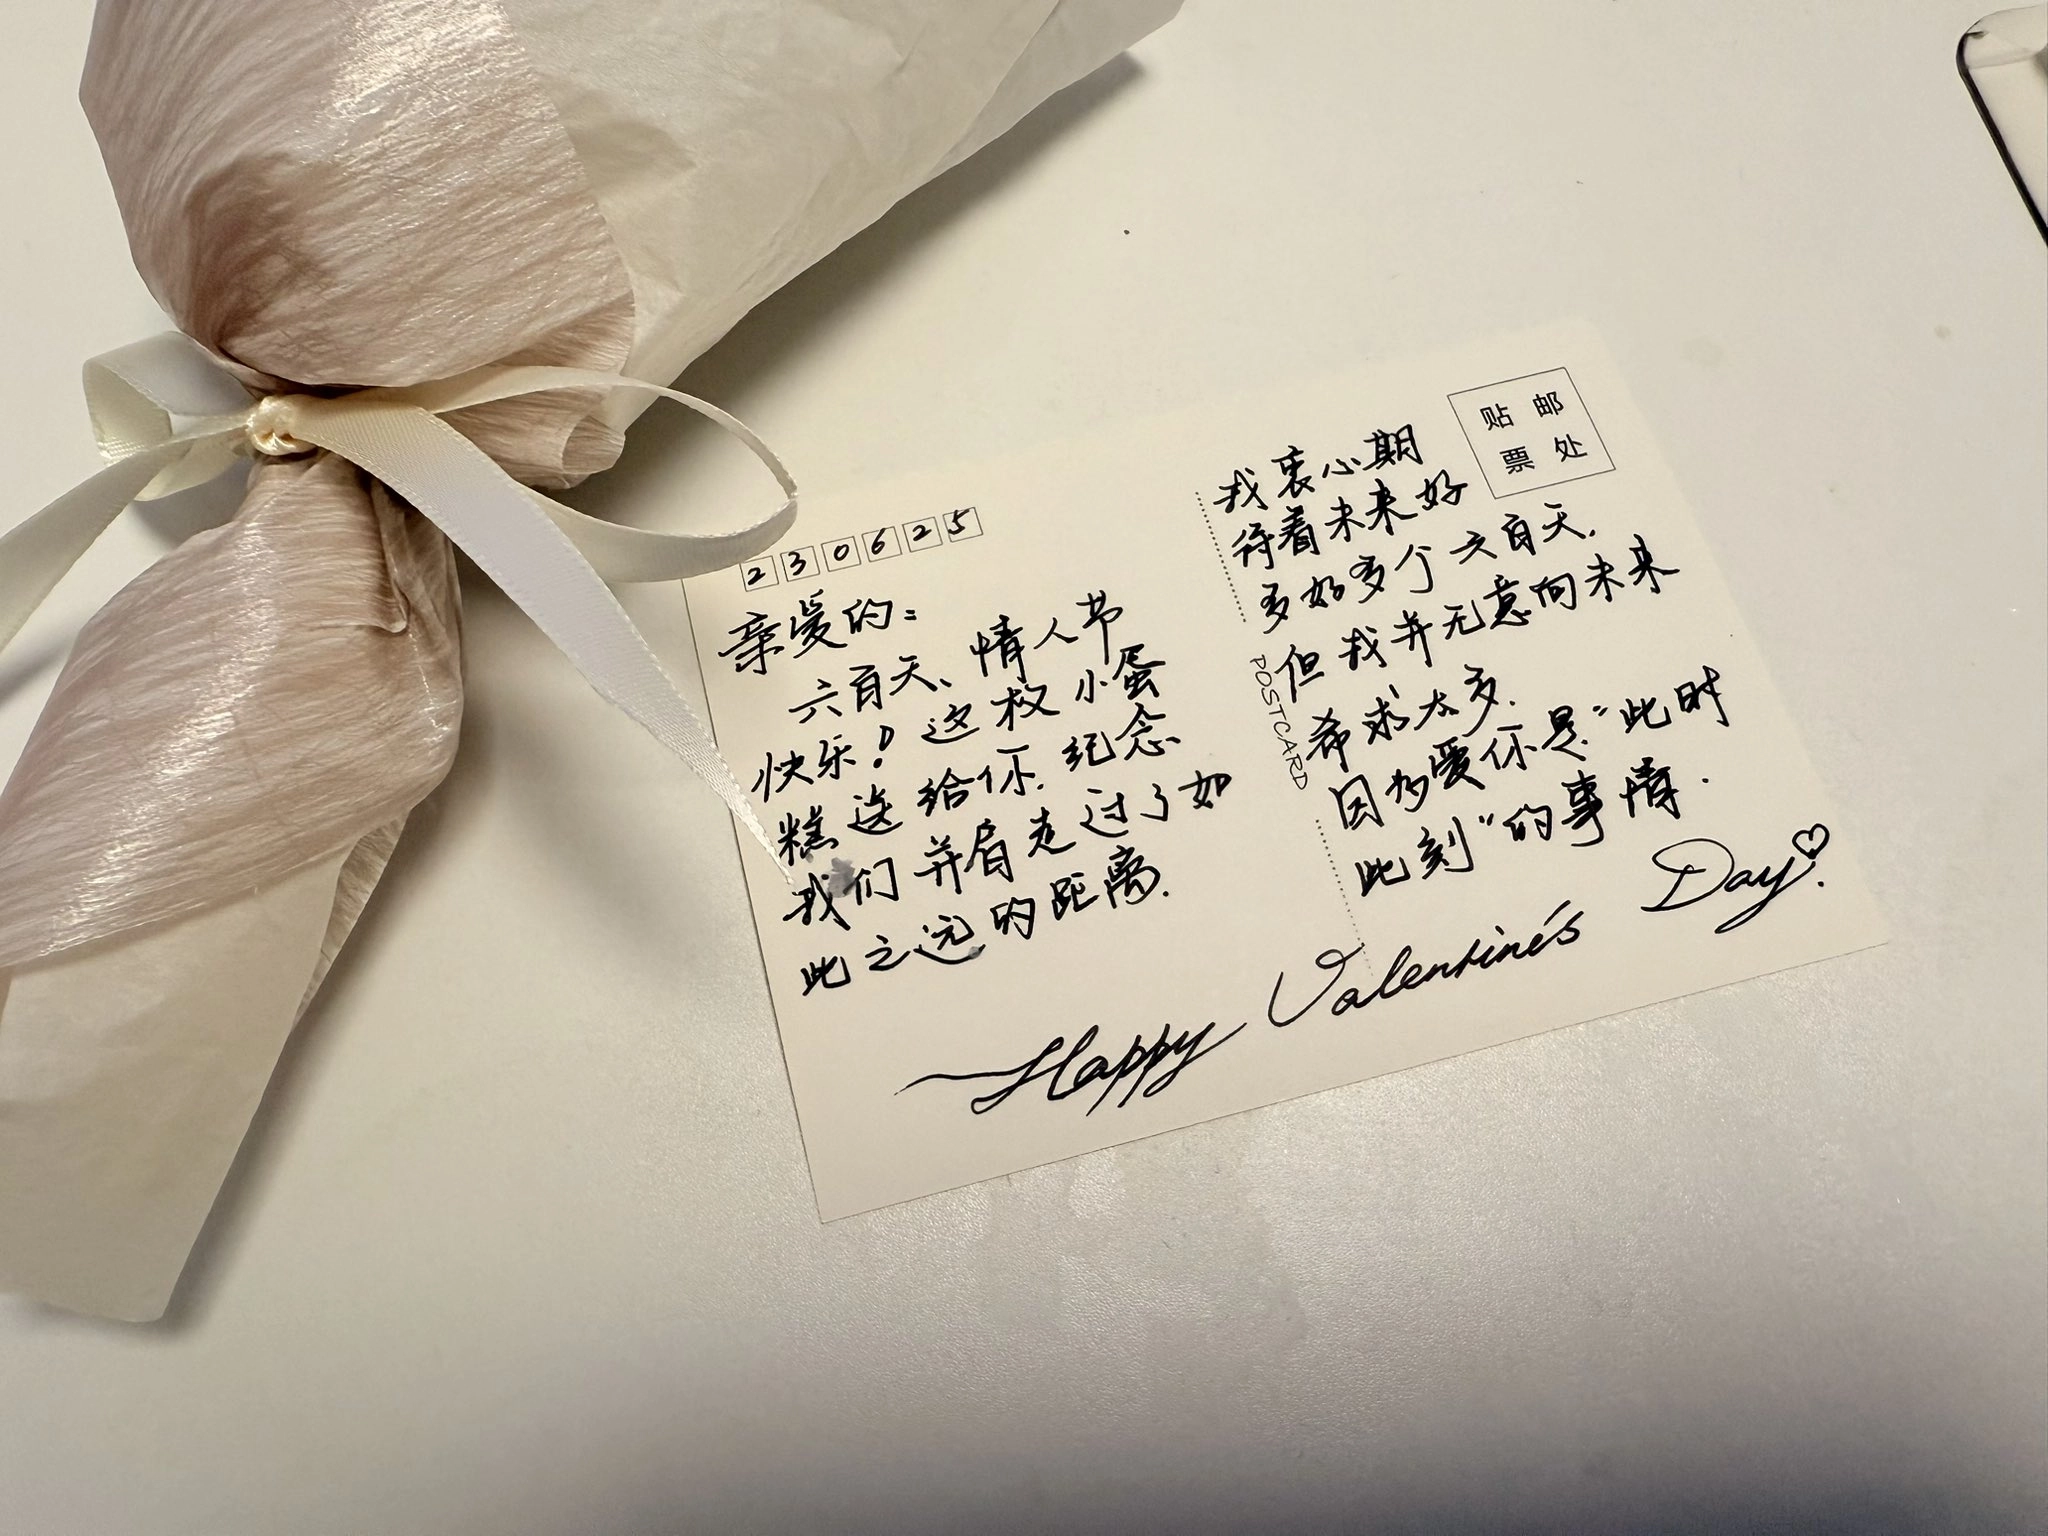 230625
亲爱的：
六百天、情人节
快乐！这枚小蛋
糕送给你，纪念
我们并肩走过了如
此之远的距离．
贴 邮
票 处
我衷心期
待着未来好
多好多个六百天．
但我并无意向未来
希求太多．
因为爱你是“此时
此刻”的事情．
POSTCARD
Happy Valentine's Day♡!